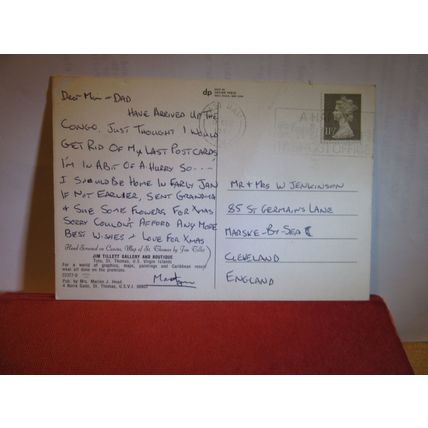 dp
Dear Mum & DAD
HAVE ARRIVED UP THE
CONGO. JUST THOUGHT I WOULD
GET RID OF MY LAST POSTCARDS
I'M IN A BIT OF A HURRY SO---
I SHOULD BE HOME IN EARLY JAN
IF NOT EARLIER, SENT GRANDMA
& SHE SOME FLOWERS FOR XMAS
SORRY COULDN'T AFFORD ANY MORE
BEST WISHES & LOVE FOR XMAS
Hand Screened on Canvas, Map of St. Thomas by Jim Tillett
JIM TILLETT GALLERY AND BOUTIQUE
Tutu, St. Thomas, U.S. Virgin Islands
For a world of graphics, maps, paintings and Caribbean resort
wear all done on the premises.
Pub. by Mrs. Marion J. Head
St. Thomas, U.S.V.I.
11½P
POST OFFICE
MR & MRS W JENKINSON
85 ST GERMAINS LANE
MARSKE-BY-SEA
CLEVELAND
ENGLAND